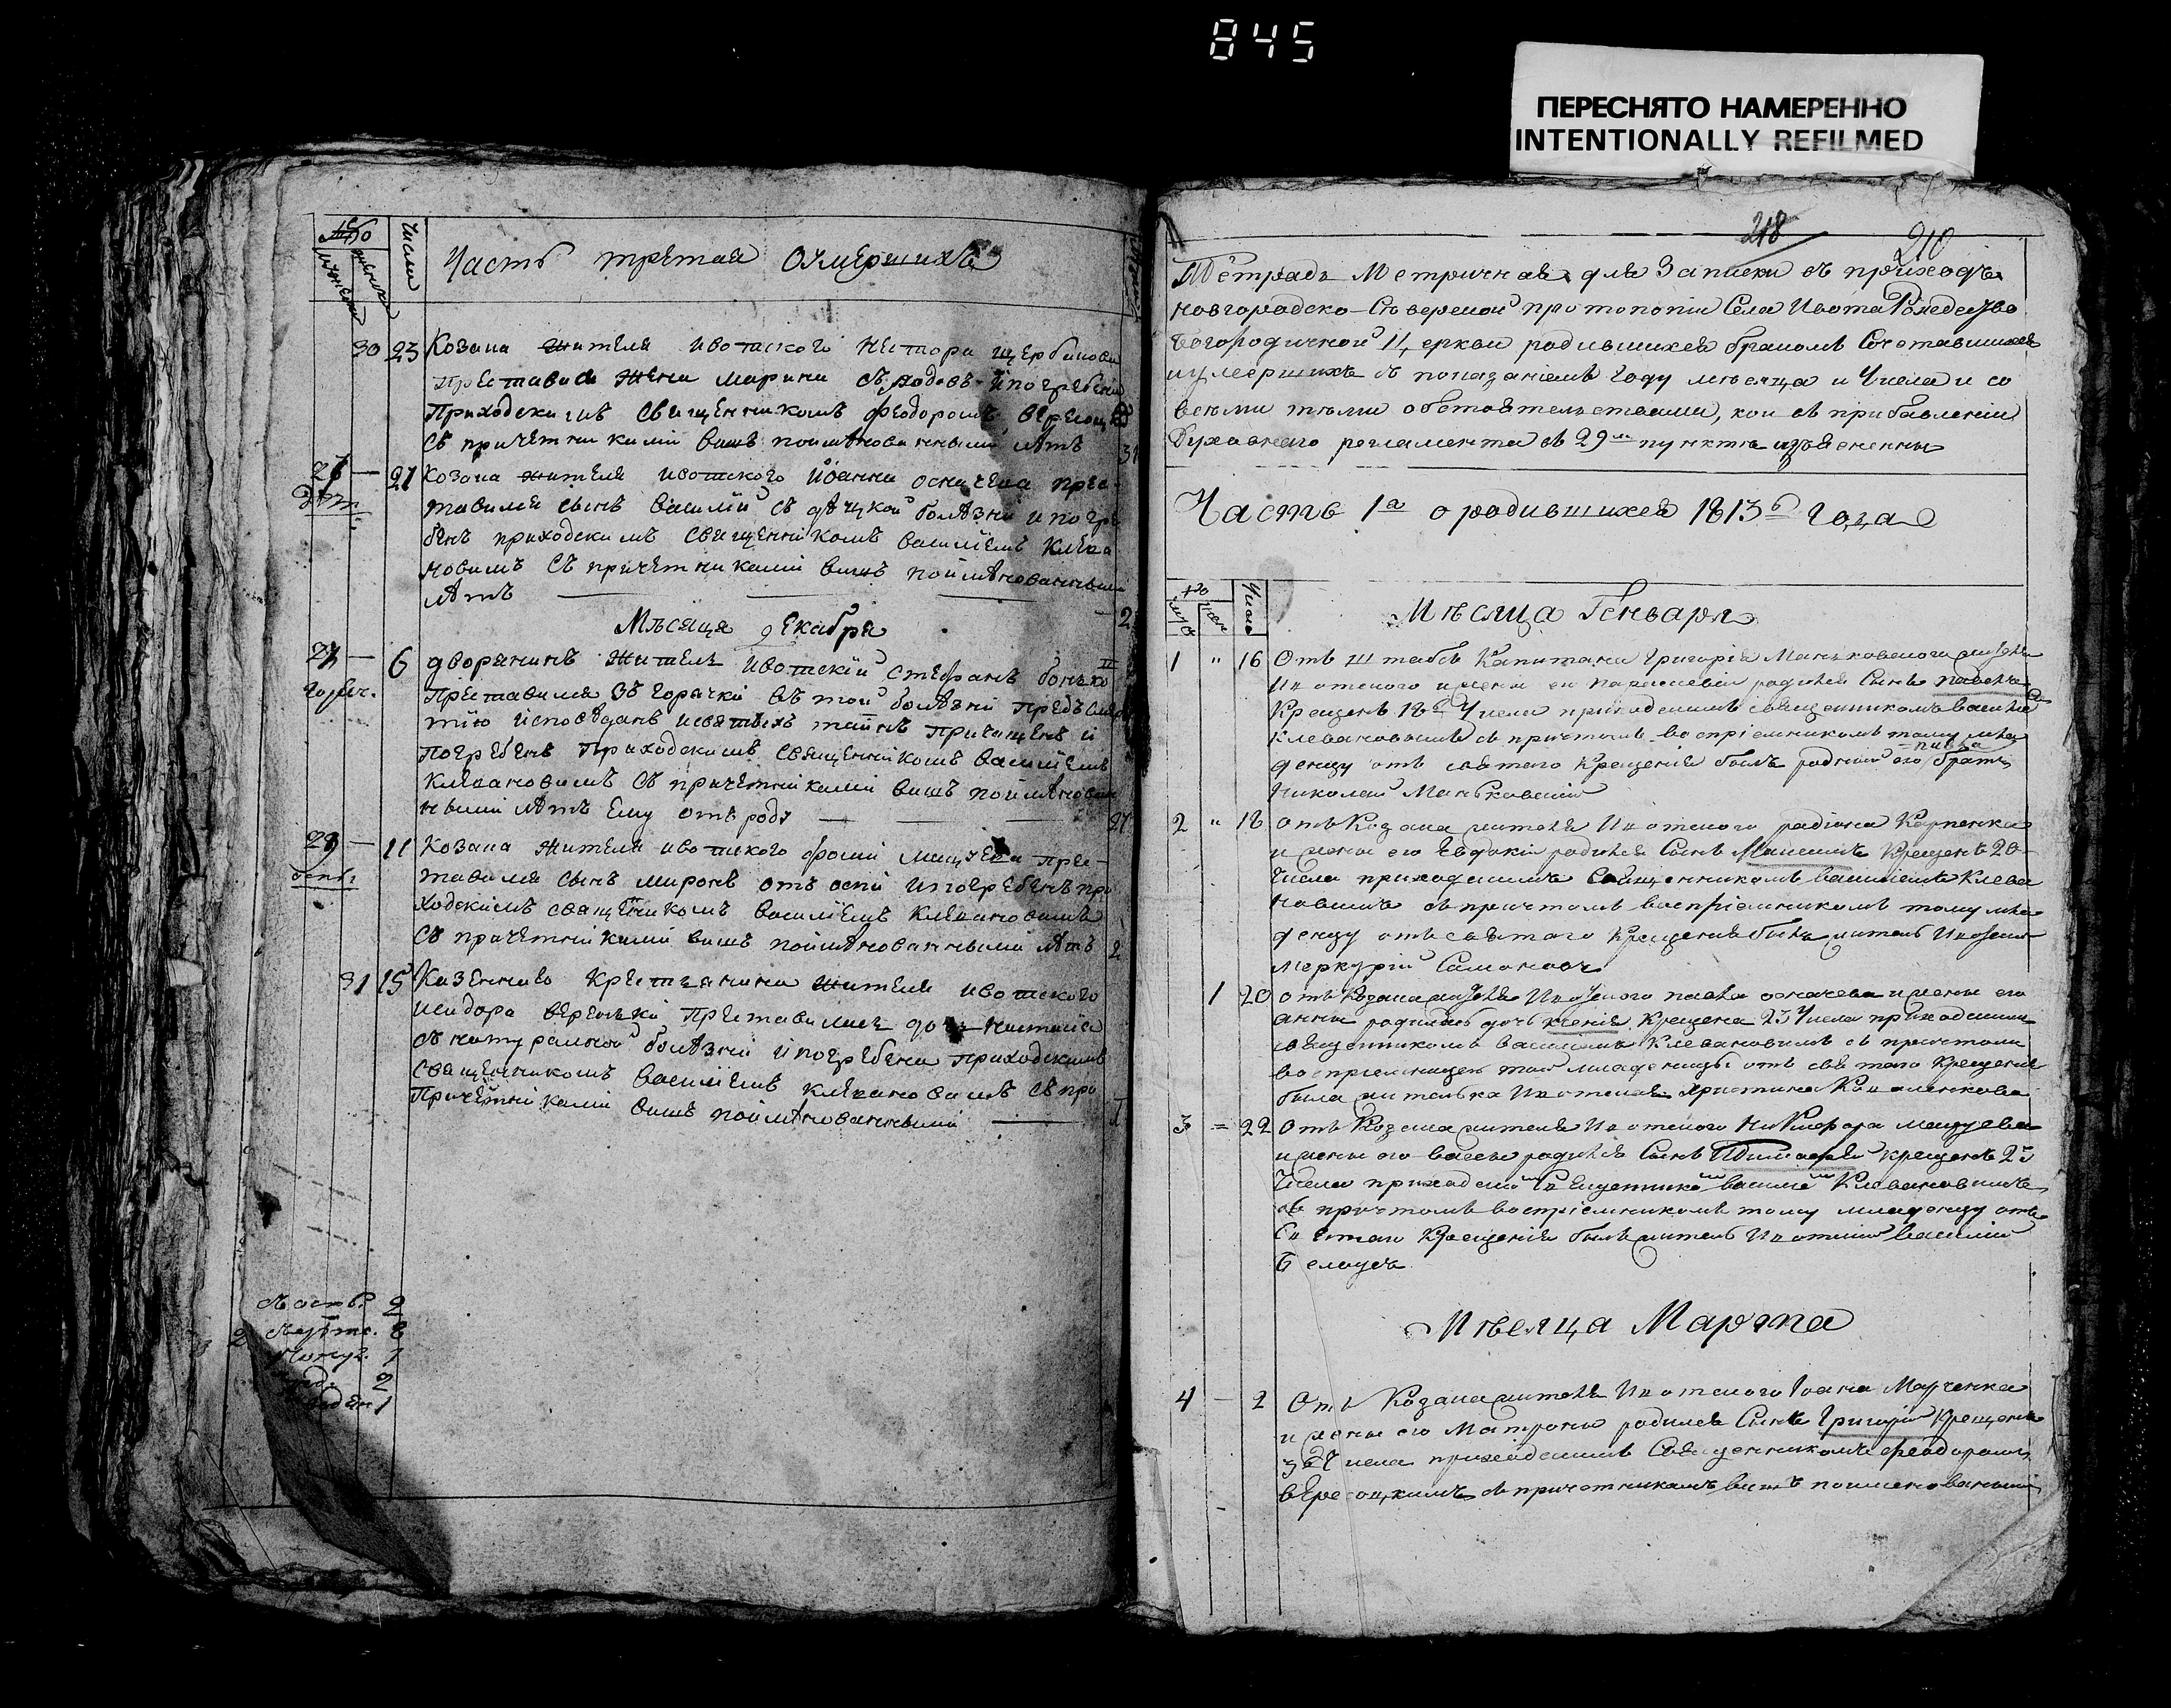 845
ПЕРЕСНЯТО НАМЕРЕННО
INTENTIONALLY REFILMED
Числа
Часть третая Оумершихъ
30 23 Козака жителя ивотского Нестора щербакова
преставися жена марина съ родовъ и погребена
Приходскимъ Священникомъ феодоромъ
Съ причетниками вишъ поимѣнованными лѣтъ 31
26 — 21 Козака жителя ивотского Иоанна осначева пре-
тавился сынъ Василий съ дѣцкой болѣзни и погре
бенъ приходскимъ Священникомъ василиемъ Клева
новимъ Съ причетниками вишъ поимѣнованными
лѣтъ — — — 2
Мѣсяця декабря
27 — 6 дворянинъ Житель ивотский Стефанъ
Преставился въ горачки въ той болѣзни предъ смер
тию исповѣданъ и святихъ тайнъ причащенъ и
погребенъ приходскимъ Священникомъ василиемъ
Клевановимъ Съ причетниками вишъ поимѣнован
ными лѣтъ Ему отъ роду — — — 27
горяч.
28 — 11 Козака жителя ивотского фоми мацуева пре-
тавился сынъ миронъ отъ оспи и погребенъ при
ходскимъ священикомъ василиемъ Клевановимъ
Съ причетниками вишъ поимѣнованными лѣтъ 2
31 15 Казенного Крестянина жителя ивотского
исидора преставилися дочь настасия
съ натуралной болѣзни и погребена приходскимъ
священникомъ василиемъ клевановимъ съ при
Причетниками вишъ поимѣнованными — 1
2
8
1
2
1
218
210
Тетрадь Метричная для Записки въ приходѣ
новгородско-Сѣверской протопопии Села Ивота Рождество
Богородичной Церкви родившихся бракомъ Сочетавшихся
и умершихъ съ показаниемъ году мѣсяца и Числа и со
всѣми тѣми обстоятельствами, кои въ прибавлении
Духовнаго регламента въ 29м пунктѣ изъяснены
Часть 1а о родившихся 1813г года
Число
Мѣсяца Генваря
1 " 16 Отъ штабсъ Капитана Григория Маньковского жителя
Ивотского и жены его параскевии родился Сынъ павелъ
Крещенъ 18г Числа приходскимъ священникомъ василие
Клевановымъ съ причтомъ восприемникомъ тому мла
денцу отъ святаго Крещения былъ родний его братъ
Николай Маньковский
2 " 18 отъ Козака жителя Ивотского радиона Карпенка
и жены его Евдокии родился Сынъ Максимъ Крещенъ 20
Числа приходскимъ Священникомъ василиемъ Клева
новимъ съ причтомъ восприемникомъ тому мла
денцу отъ святаго Крещения былъ житель Ивотский
меркурий
1 20 отъ Козака жителя Ивотского павла осначева и жены его
анны родилась дочь ксения Крещена 23 Числа приходским
священникомъ василиемъ Клевановимъ съ причтомъ
восприемницею той младеницы отъ святаго Крещения
была жителька Ивотская Христина Коваленкова
3 = 22 Отъ Козака жителя Ивотского Никифора мацуева
и жены его васы родился Сынъ Тимофей крещенъ 23
Числа приходским Священником василием Клевановимъ
съ причтомъ восприемникомъ тому младенцу отъ
Святаго Крещения былъ житель Ивотский василий
Белоусъ
Мѣсяца Марта
4 — 2 Отъ Козака жителя Ивотского Иоана Марченка
и жены его Матроны родился Сынъ Григорий Крещенъ
3г Числа приходскимъ Священникомъ феодоромъ
съ причетникамъ вишъ поименованими